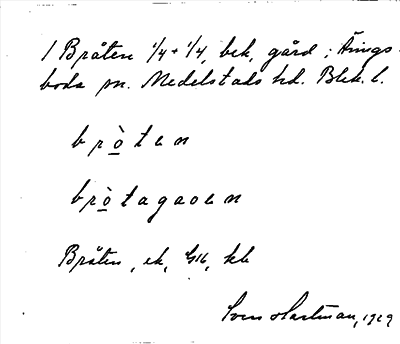 1 Bråten 1/4 + 1/4, bek, gård i Ärings-
boda sn. Medelstads hd. Blek. l.
brò̲ten
brò̲tagaoen
Bråten, ek,
Sven Hartman, 1929